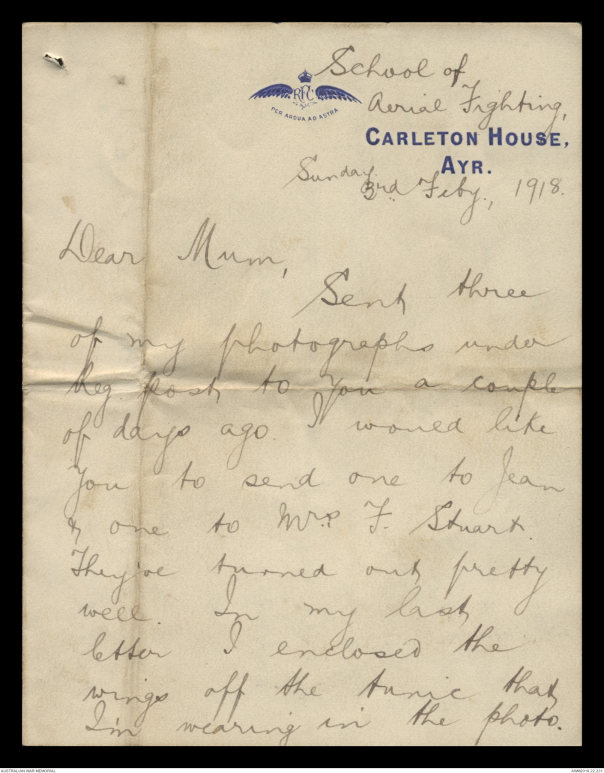 School of
RFC
PER ARDUA AD ASTRA
Aerial Fighting,
CARLETON HOUSE,
AYR.
Sunday
3rd Feby., 1918.
Dear Mum,
Sent three
of my photographs under
Reg post to you a couple
of days ago. I would like
you to send one to Jean
& one to Mrs. F. Stuart.
They've turned out pretty
well. In my last
letter I enclosed the
wings off the tunic that
I'm wearing in the photo.
AUSTRALIAN WAR MEMORIAL